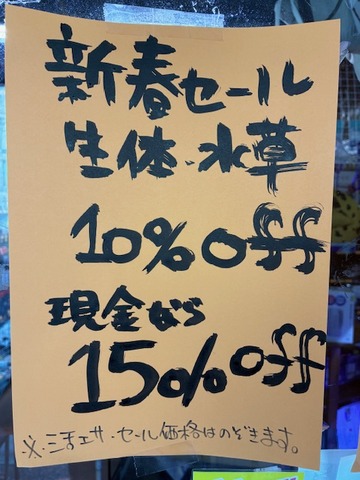 新春セール
生体、水草
10%off
現金なら
15%off
※、活エサ・セール価格はのぞきます。